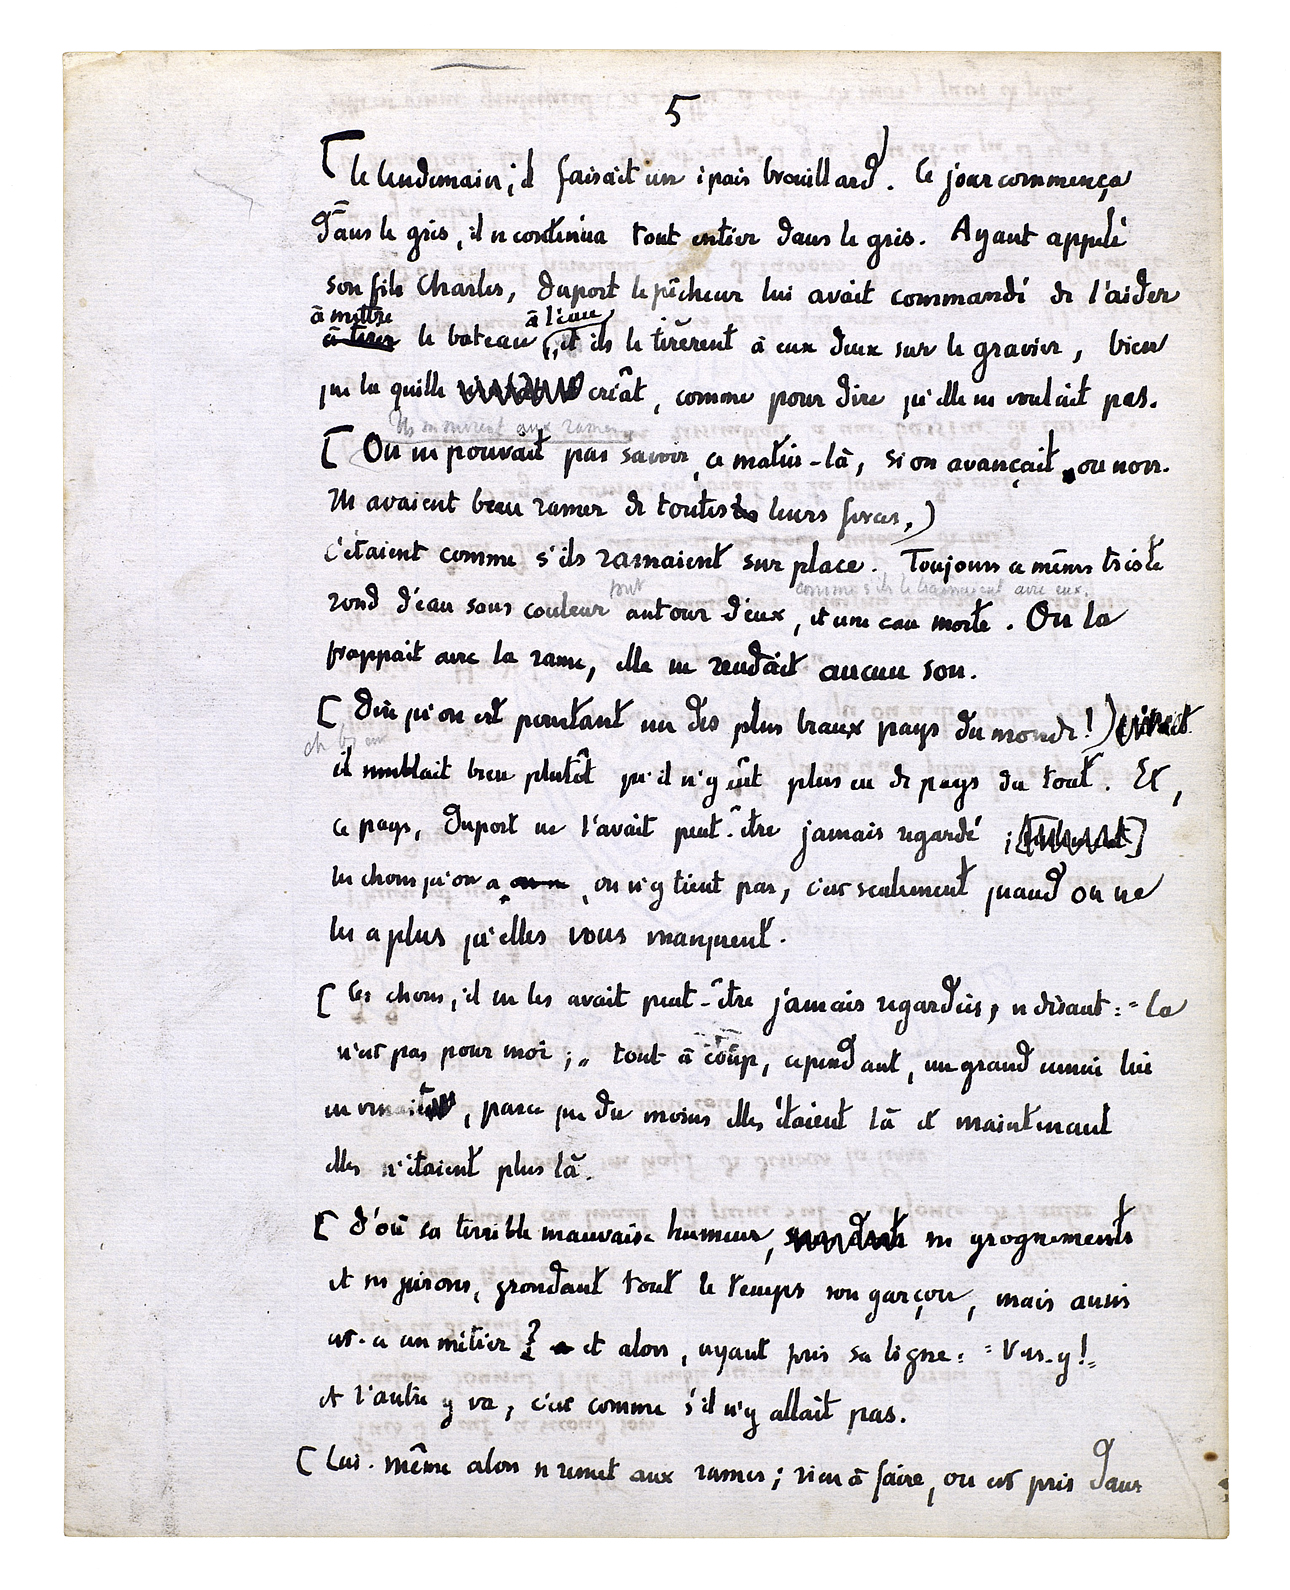 5
Le lendemain, il faisait un épais brouillard. Le jour commença
dans le gris, il se continua tout entier dans le gris. Ayant appelé
son fils Charles, Duport le pêcheur lui avait commandé de l'aider
à mettre à l'eau
à tirer le bateau, et ils le tirèrent à eux deux sur le gravier, bien
que la quille criât, comme pour dire qu'elle ne voulait pas.
Ils se mirent aux rames
On ne pouvait pas savoir, ce matin-là, si on avançait ou non.
Ils avaient beau ramer de toutes leurs forces,)
c'étaient comme s'ils ramaient sur place. Toujours ce même triste
tout comme s'ils le traînaient avec eux,
rond d'eau sans couleur autour d'eux, et une eau morte. On la
frappait avec la rame, elle ne rendait aucun son.
Dire qu'on est pourtant un des plus beaux pays du monde!)
eh bien
il semblait bien plutôt qu'il n'y eût plus eu de pays du tout. Et,
ce pays, Duport ne l'avait peut-être jamais regardé ;
les choses qu'on a, on n'y tient pas, c'est seulement quand on ne
les a plus qu'elles vous manquent.
Ces choses, il ne les avait peut-être jamais regardées, se disant : "Ça
n'est pas pour moi ;" tout à coup, cependant, un grand ennui lui
en venait, parce que du moins elles étaient là et maintenant
elles n'étaient plus là.
D'où sa terrible mauvaise humeur, ses grognements
et ses jurons, grondant tout le temps son garçon, mais aussi
est-ce un métier ? et alors, ayant pris sa ligne : "Vas-y !"
et l'autre y va, c'est comme s'il n'y allait pas.
Lui-même alors se remet aux rames ; rien à faire, on est pris dans